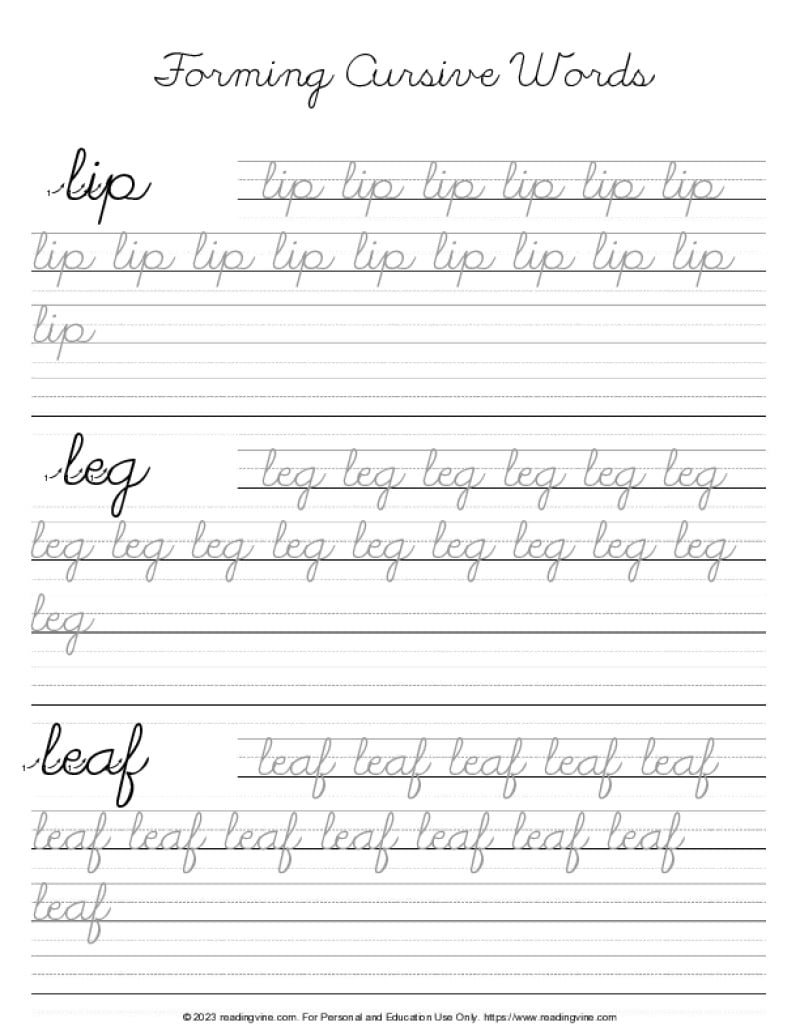 Forming Cursive Words
lip lip lip lip lip lip lip
lip lip lip lip lip lip lip lip lip
lip
leg leg leg leg leg leg leg
leg leg leg leg leg leg leg leg leg
leg
leaf leaf leaf leaf leaf leaf
leaf leaf leaf leaf leaf leaf leaf
leaf
© 2023 readingvine.com. For Personal and Education Use Only. https://www.readingvine.com